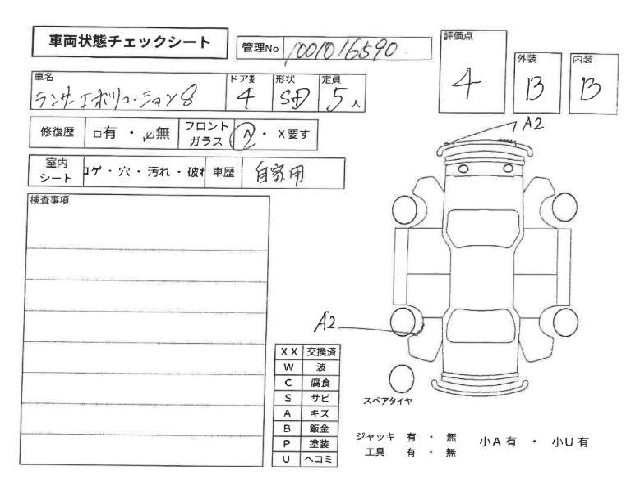 車両状態チェックシート
管理No 1001016590
評価点 4
外装 B
内装 B
車名 ランサーエボリューション8
ドア数 4
形状 SD
定員 5人
修復歴 □有 ・ ☑無
フロントガラス A ・ X要す
室内シート コゲ・穴・汚れ・破れ
車歴 自家用
検査事項
A2
A2
XX 交換済
W 波
C 腐食
S サビ
A キズ
B 鈑金
P 塗装
U ヘコミ
スペアタイヤ
ジャッキ 有 ・ 無
工具 有 ・ 無
小A有 ・ 小U有